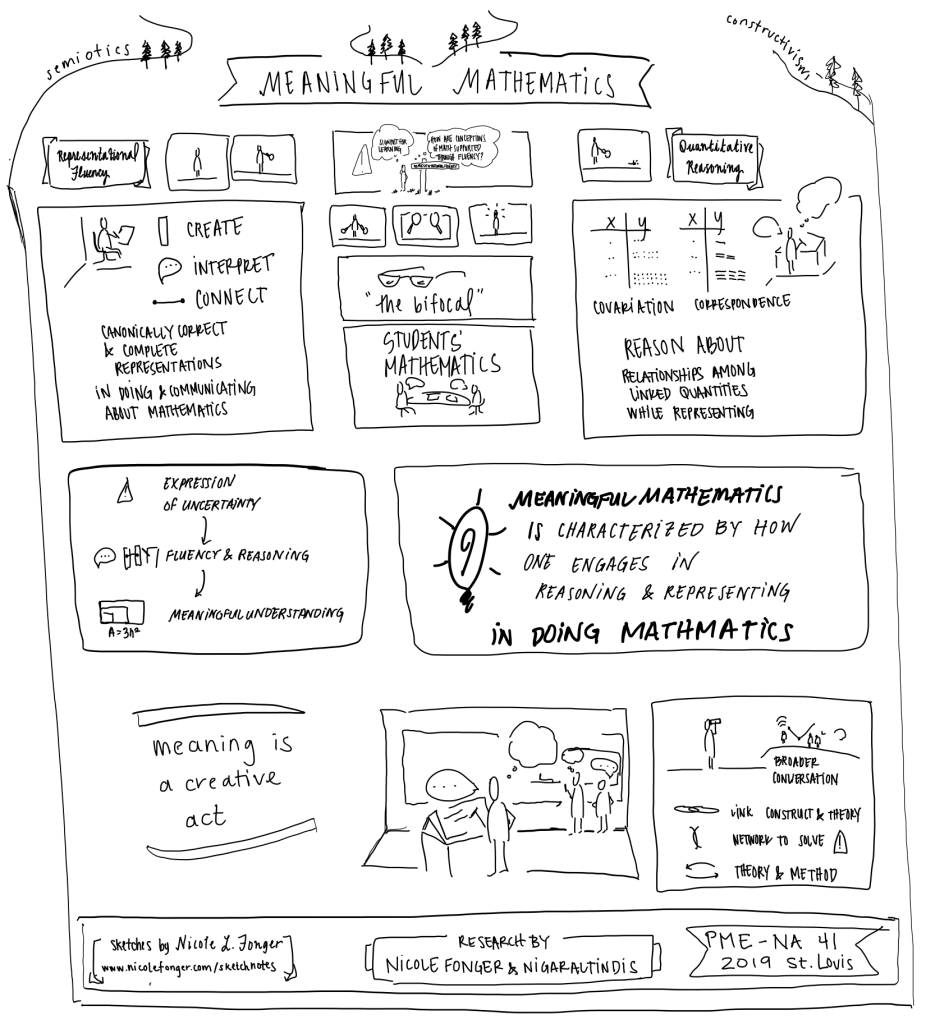 semiotics
constructivism
MEANINGFUL MATHEMATICS
Representational
Fluency
SUPPORT FOR
LEARNING
HOW ARE CONCEPTIONS
OF MATH SUPPORTED
THROUGH FLUENCY?
Quantitative
Reasoning
CREATE
INTERPRET
CONNECT
CANONICALLY CORRECT
& COMPLETE
REPRESENTATIONS
IN DOING & COMMUNICATING
ABOUT MATHEMATICS
"the bifocal"
STUDENTS'
MATHEMATICS
x y
x y
COVARIATION
CORRESPONDENCE
REASON ABOUT
RELATIONSHIPS AMONG
LINKED QUANTITIES
WHILE REPRESENTING
EXPRESSION
OF UNCERTAINTY
FLUENCY & REASONING
MEANINGFUL UNDERSTANDING
A=3h²
MEANINGFUL MATHEMATICS
IS CHARACTERIZED BY HOW
ONE ENGAGES IN
REASONING & REPRESENTING
IN DOING MATHMATICS
meaning is
a creative
act
BROADER
CONVERSATION
LINK CONSTRUCT & THEORY
NETWORK TO SOLVE
THEORY & METHOD
Sketches by Nicole L. Fonger
www.nicolefonger.com/sketchnotes
RESEARCH BY
NICOLE FONGER & NIGAR ALTINDIS
PME-NA 41
2019 St. Louis